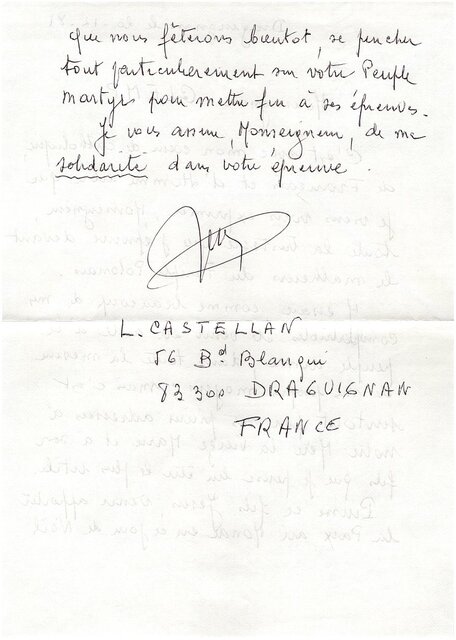 que nous fêterons bientôt, se pencher
tout particulièrement sur votre Peuple
martyr pour mettre fin à ses épreuves.
Je vous assure, Monseigneur, de ma
solidarité dans votre épreuve.
L. CASTELLAN
56 Bd Blanqui
83 300 DRAGUIGNAN
FRANCE